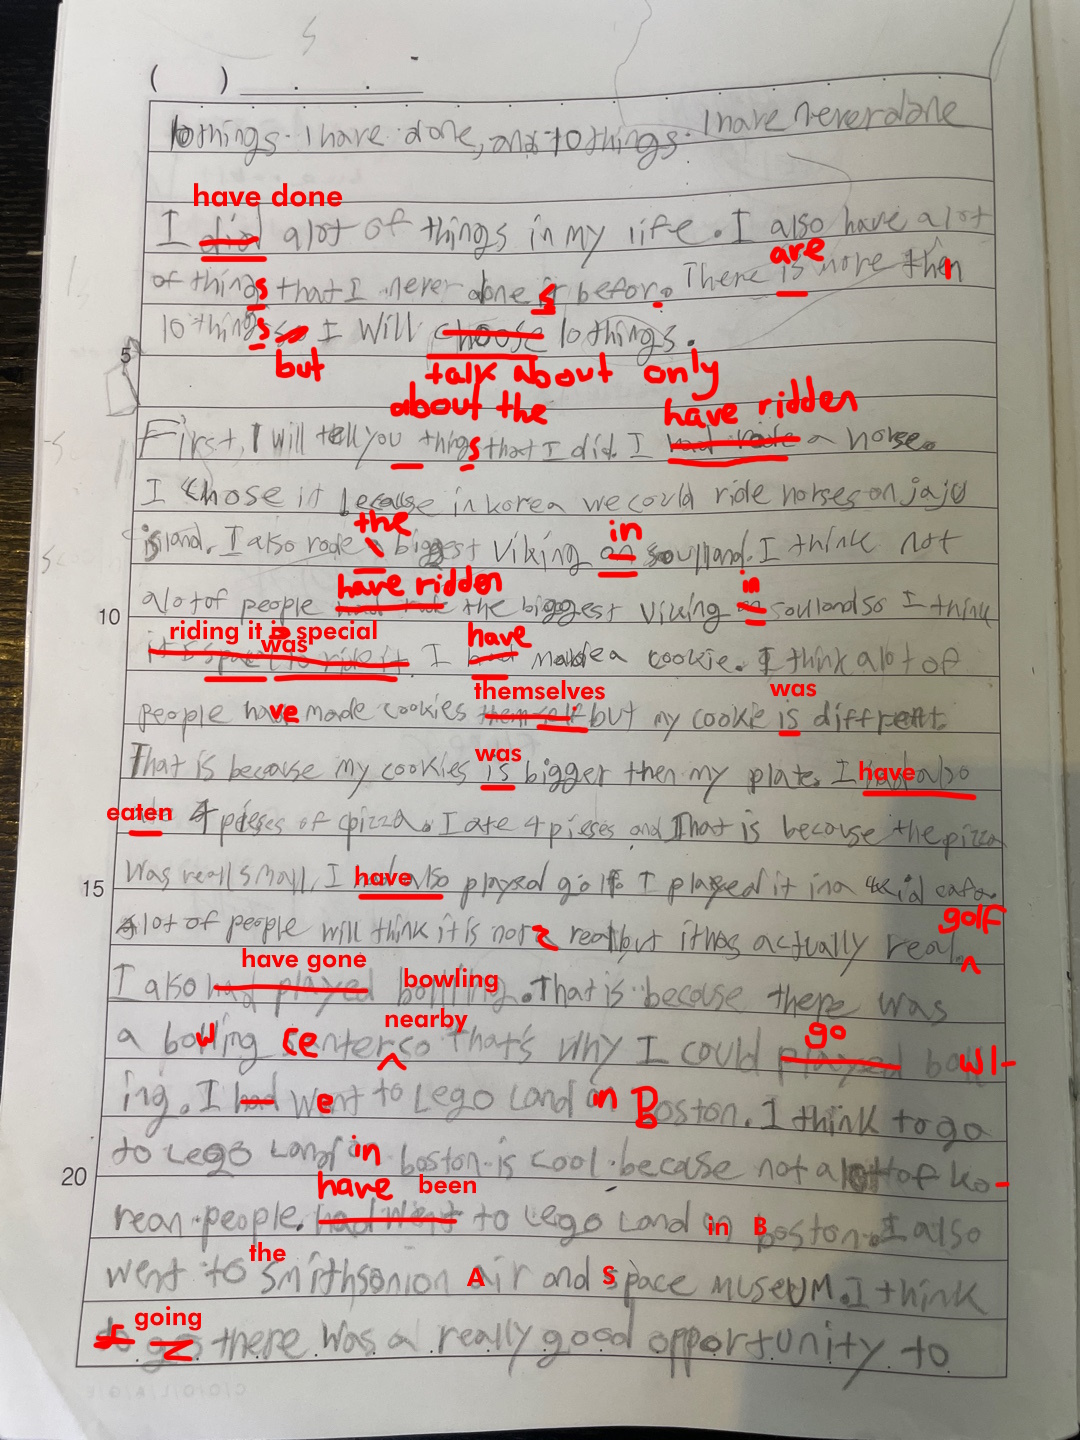 ( )
10things I have done, and 10things I have never done
have done
I did alot of things in my life. I also have alot
are
of things that I never done is befor. There is more then
10 things so I will choose 10things.
5
but talk about only
about the have ridden
First, I will tell you things that I did. I had rode a horse.
I chose it because in korea we could ride horses on jaju
the in
island. I also rode biggest viking on soulland. I think not
have ridden in
10
alot of people the biggest viking on soulland so I think
riding it is special have
was
it is to ride it. I had make a cookie. I think alot of
themselves was
people have made cookies them self but my cookie is diffrent.
was
That is because my cookies is bigger then my plate. I have also
eaten 4 pieses of pizza. I ate 4 pieses and That is because the pizza
15
Was reall small, I have also played golf I played it in a kid cafe.
golf
Alot of people will think it is not real but it has actually real.
have gone bowling
I also had played. That is because there was
nearby go
a bowling center so that's why I could played bowl-
ing. I had went to Lego Land in Boston. I think to go
to Lego Land in boston is cool becase not alot of ko-
20
have been
rean people. had went to Lego Land in Boston. I also
the
went to smithsonion Air and Space museum. I think
going
to go there was a really good opportunity to